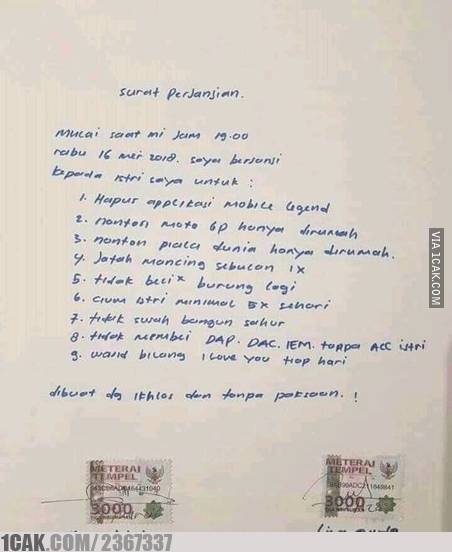 Surat Perjanjian.
Mulai saat ini Jam 19.00
rabu 16 mei 2018. saya berjanji
kepada istri saya untuk :
1. Hapus applikasi mobile legend
2. nonton moto GP hanya dirumah
3. nonton piala dunia hanya dirumah.
4. Jatah mancing sebulan 1X
5. tidak beli² burung lagi
6. cium istri minimal 5x sehari
7. tidak susah bangun sahur
8. tidak membeli DAP. DAC. IEM. tanpa ACC istri
9. wajib bilang I love you tiap hari
dibuat dg ikhlas dan tanpa paksaan. !
VIA 1CAK.COM
METERAI
TEMPEL
3000
METERAI
TEMPEL
3000
1CAK.COM/2367337